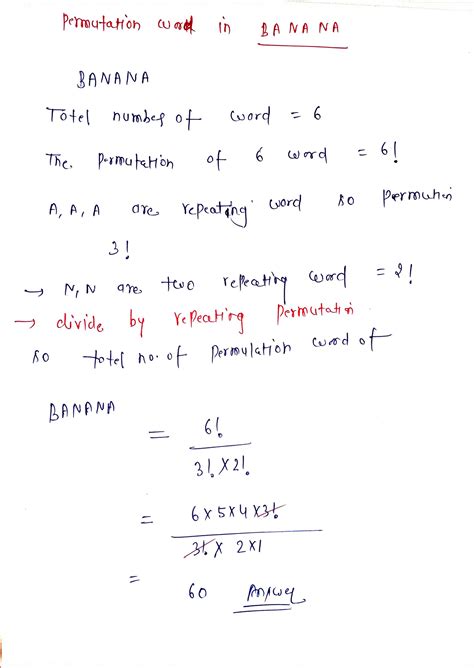 Permutation word in BANANA
BANANA
Totel number of word = 6
The. Permutation of 6 word = 6!
A, A, A are repeating word so permution
3!
→ N, N are two repeating word = 2!
→ divide by repeating Permutatin
so total no. of Permulation word of
BANANA
= 6! / 3! × 2!
= 6 × 5 × 4 × 3! / 3! × 2×1
= 60 Answer